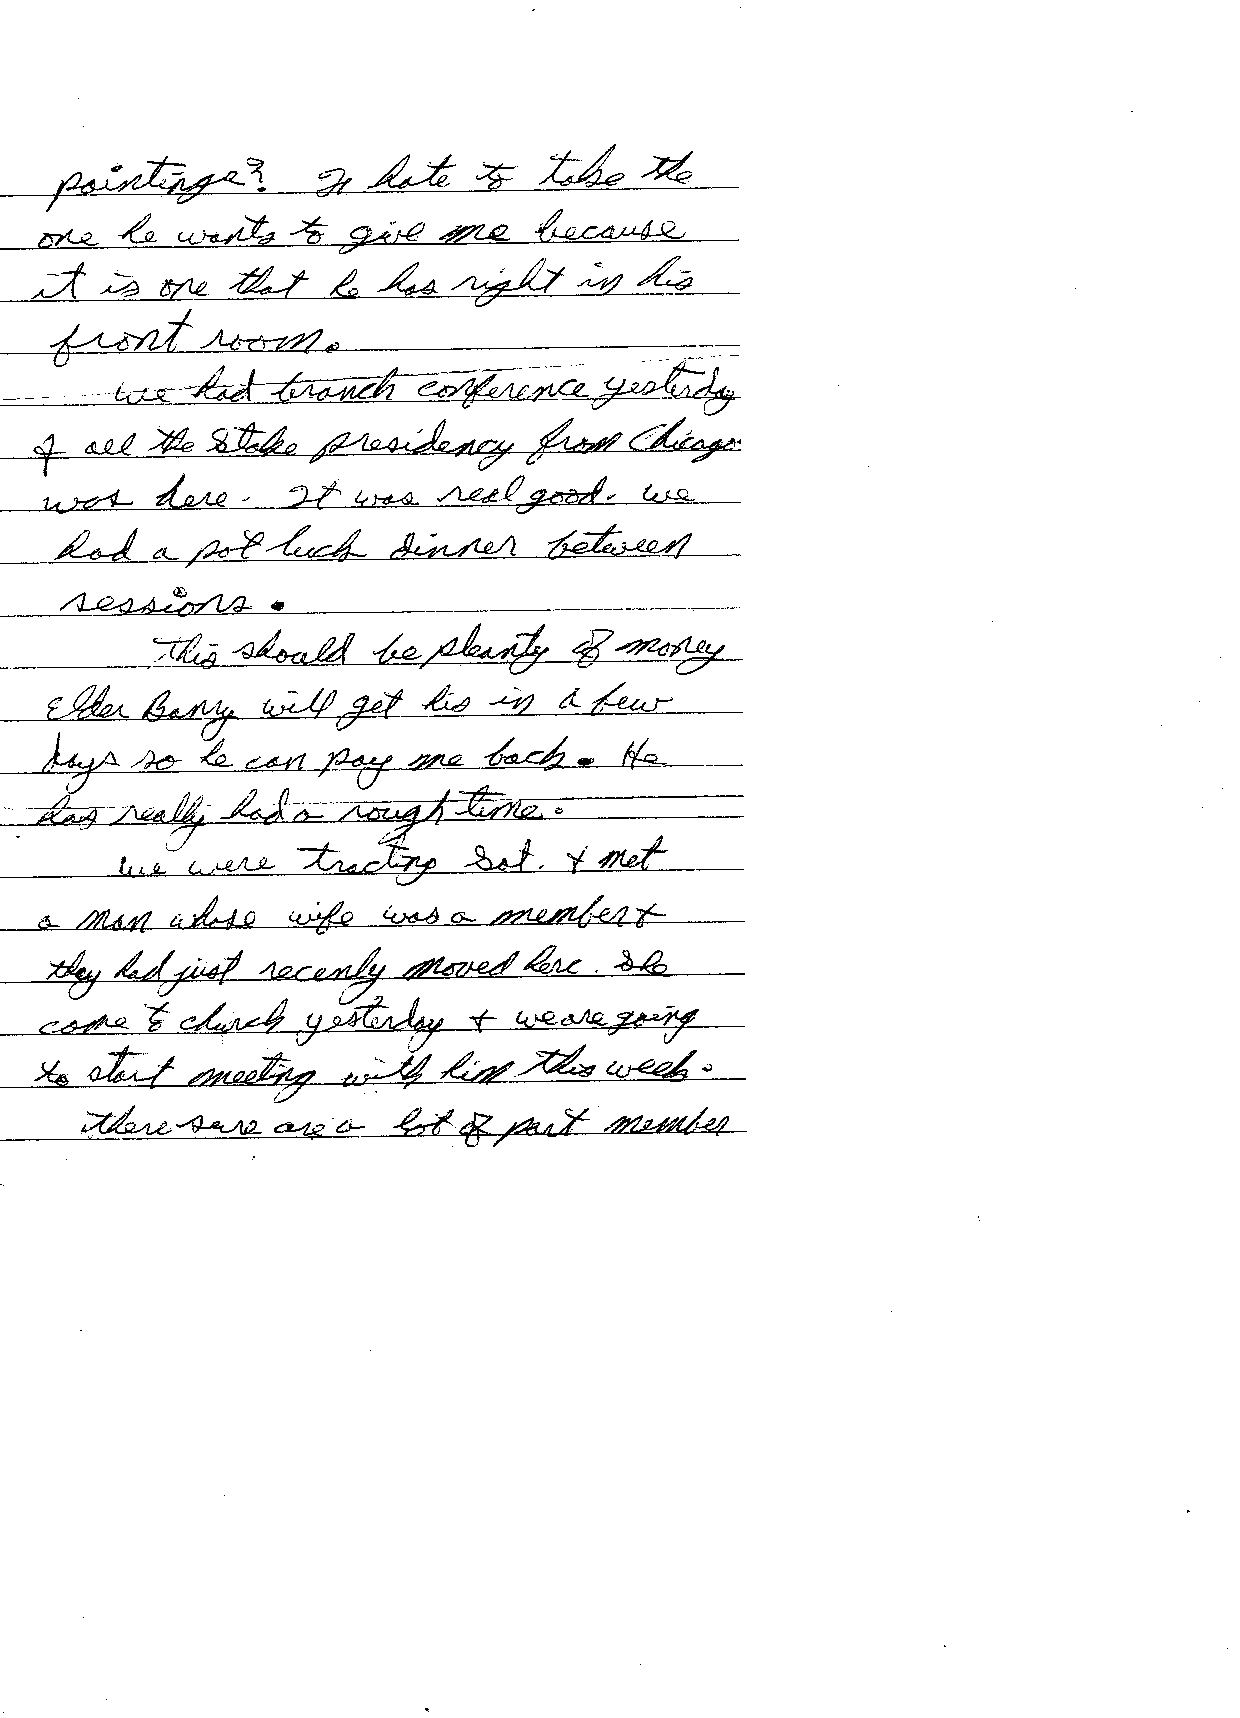 paintings? I hate to take the
one he wants to give me because
it is one that he has right in his
front room.
We had branch conference yesterday
& all the Stake presidency from Chicago
was here. It was real good. We
had a pot luck dinner between
sessions.
This should be pleanty of money
Elder Barry will get his in a few
days so he can pay me back. He
has really had a rough time.
We were tracting Sat. & met
a man whose wife was a member &
they had just recenly moved here. She
came to church yesterday & we are going
to start meeting with him this week.
There sure are a lot of part member